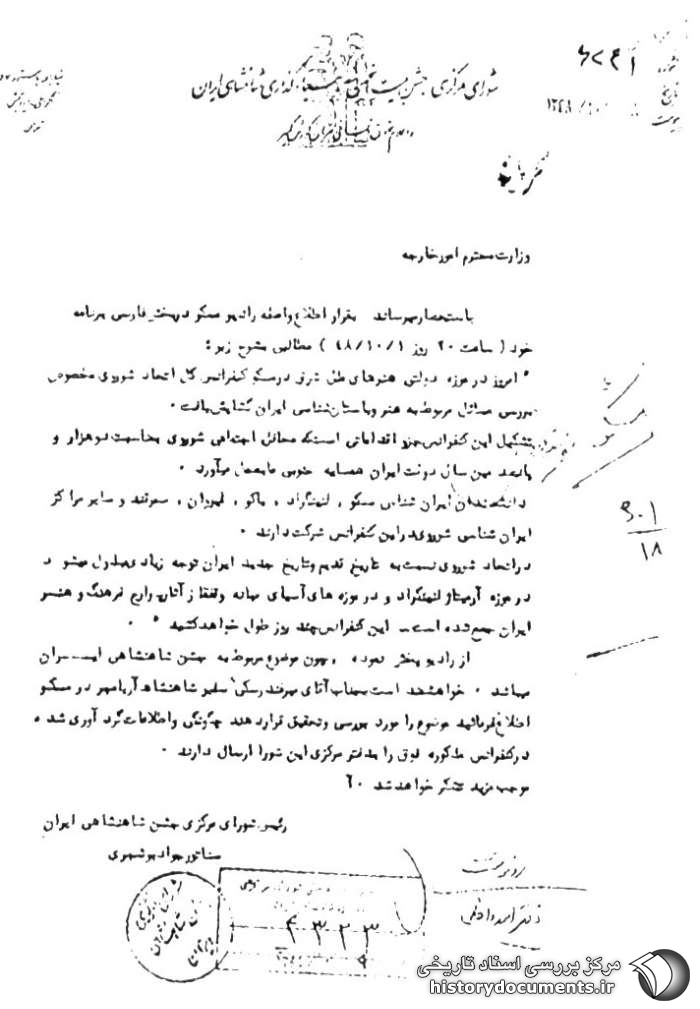 شورای مرکزی جشن شاهنشاهی ایران
شماره
تاریخ
پیوست
محرمانه
وزارت محترم امور خارجه
باستحضار میرساند بقرار اطلاع واصله رادیو مسکو در بخش فارسی برنامه
خود ( ساعت ۲۰ روز ۴۸/۱۰/۱ ) مطالبی بشرح زیر :
" امروز در موزه دولتی هنرهای ملل شرق در مسکو کنفرانس کل اتحاد شوروی مخصوص
بررسی مسائل مربوط به هنر و باستان‌شناسی ایران گشایش یافت .
تشکیل این کنفرانس جزو اقداماتی است که محافل اجتماعی شوروی بمناسبت دو هزار و
پانصد مین سال دولت ایران همسایه جنوبی ما بعمل میآورد .
دانشمندان ایران شناس مسکو ، لنینگراد ، باکو ، ایروان ، سمرقند و سایر مراکز
ایران شناسی شوروی در این کنفرانس شرکت دارند .
در اتحاد شوروی نسبت به تاریخ قدیم و تاریخ جدید ایران توجه زیادی مبذول میشود
در موزه آرمیتاژ لنینگراد و در موزه های آسیای میانه و قفقاز آثار فرهنگ و هنر
ایران جمع شده است . این کنفرانس چند روز طول خواهد کشید " .
از رادیو پخش نموده و چون موضوع مربوط به جشن شاهنشاهی ایران
میباشد . خواهشمند است بجناب آقای میرفندرسکی سفیر شاهنشاه آریامهر در مسکو
اطلاع فرمائید موضوع را مورد بررسی و تحقیق قرار دهند چگونگی و اطلاعات گرد آوری شده
در کنفرانس مذکوره فوق را بدفتر مرکزی این شورا ارسال دارند .
موجب مزید تشکر خواهد شد .
رئیس شورای مرکزی جشن شاهنشاهی ایران
سناتور جواد بوشهری
رونوشت
۴۳۲۳
۹۰۱
۱۸
مرکز بررسی اسناد تاریخی
historydocuments.ir